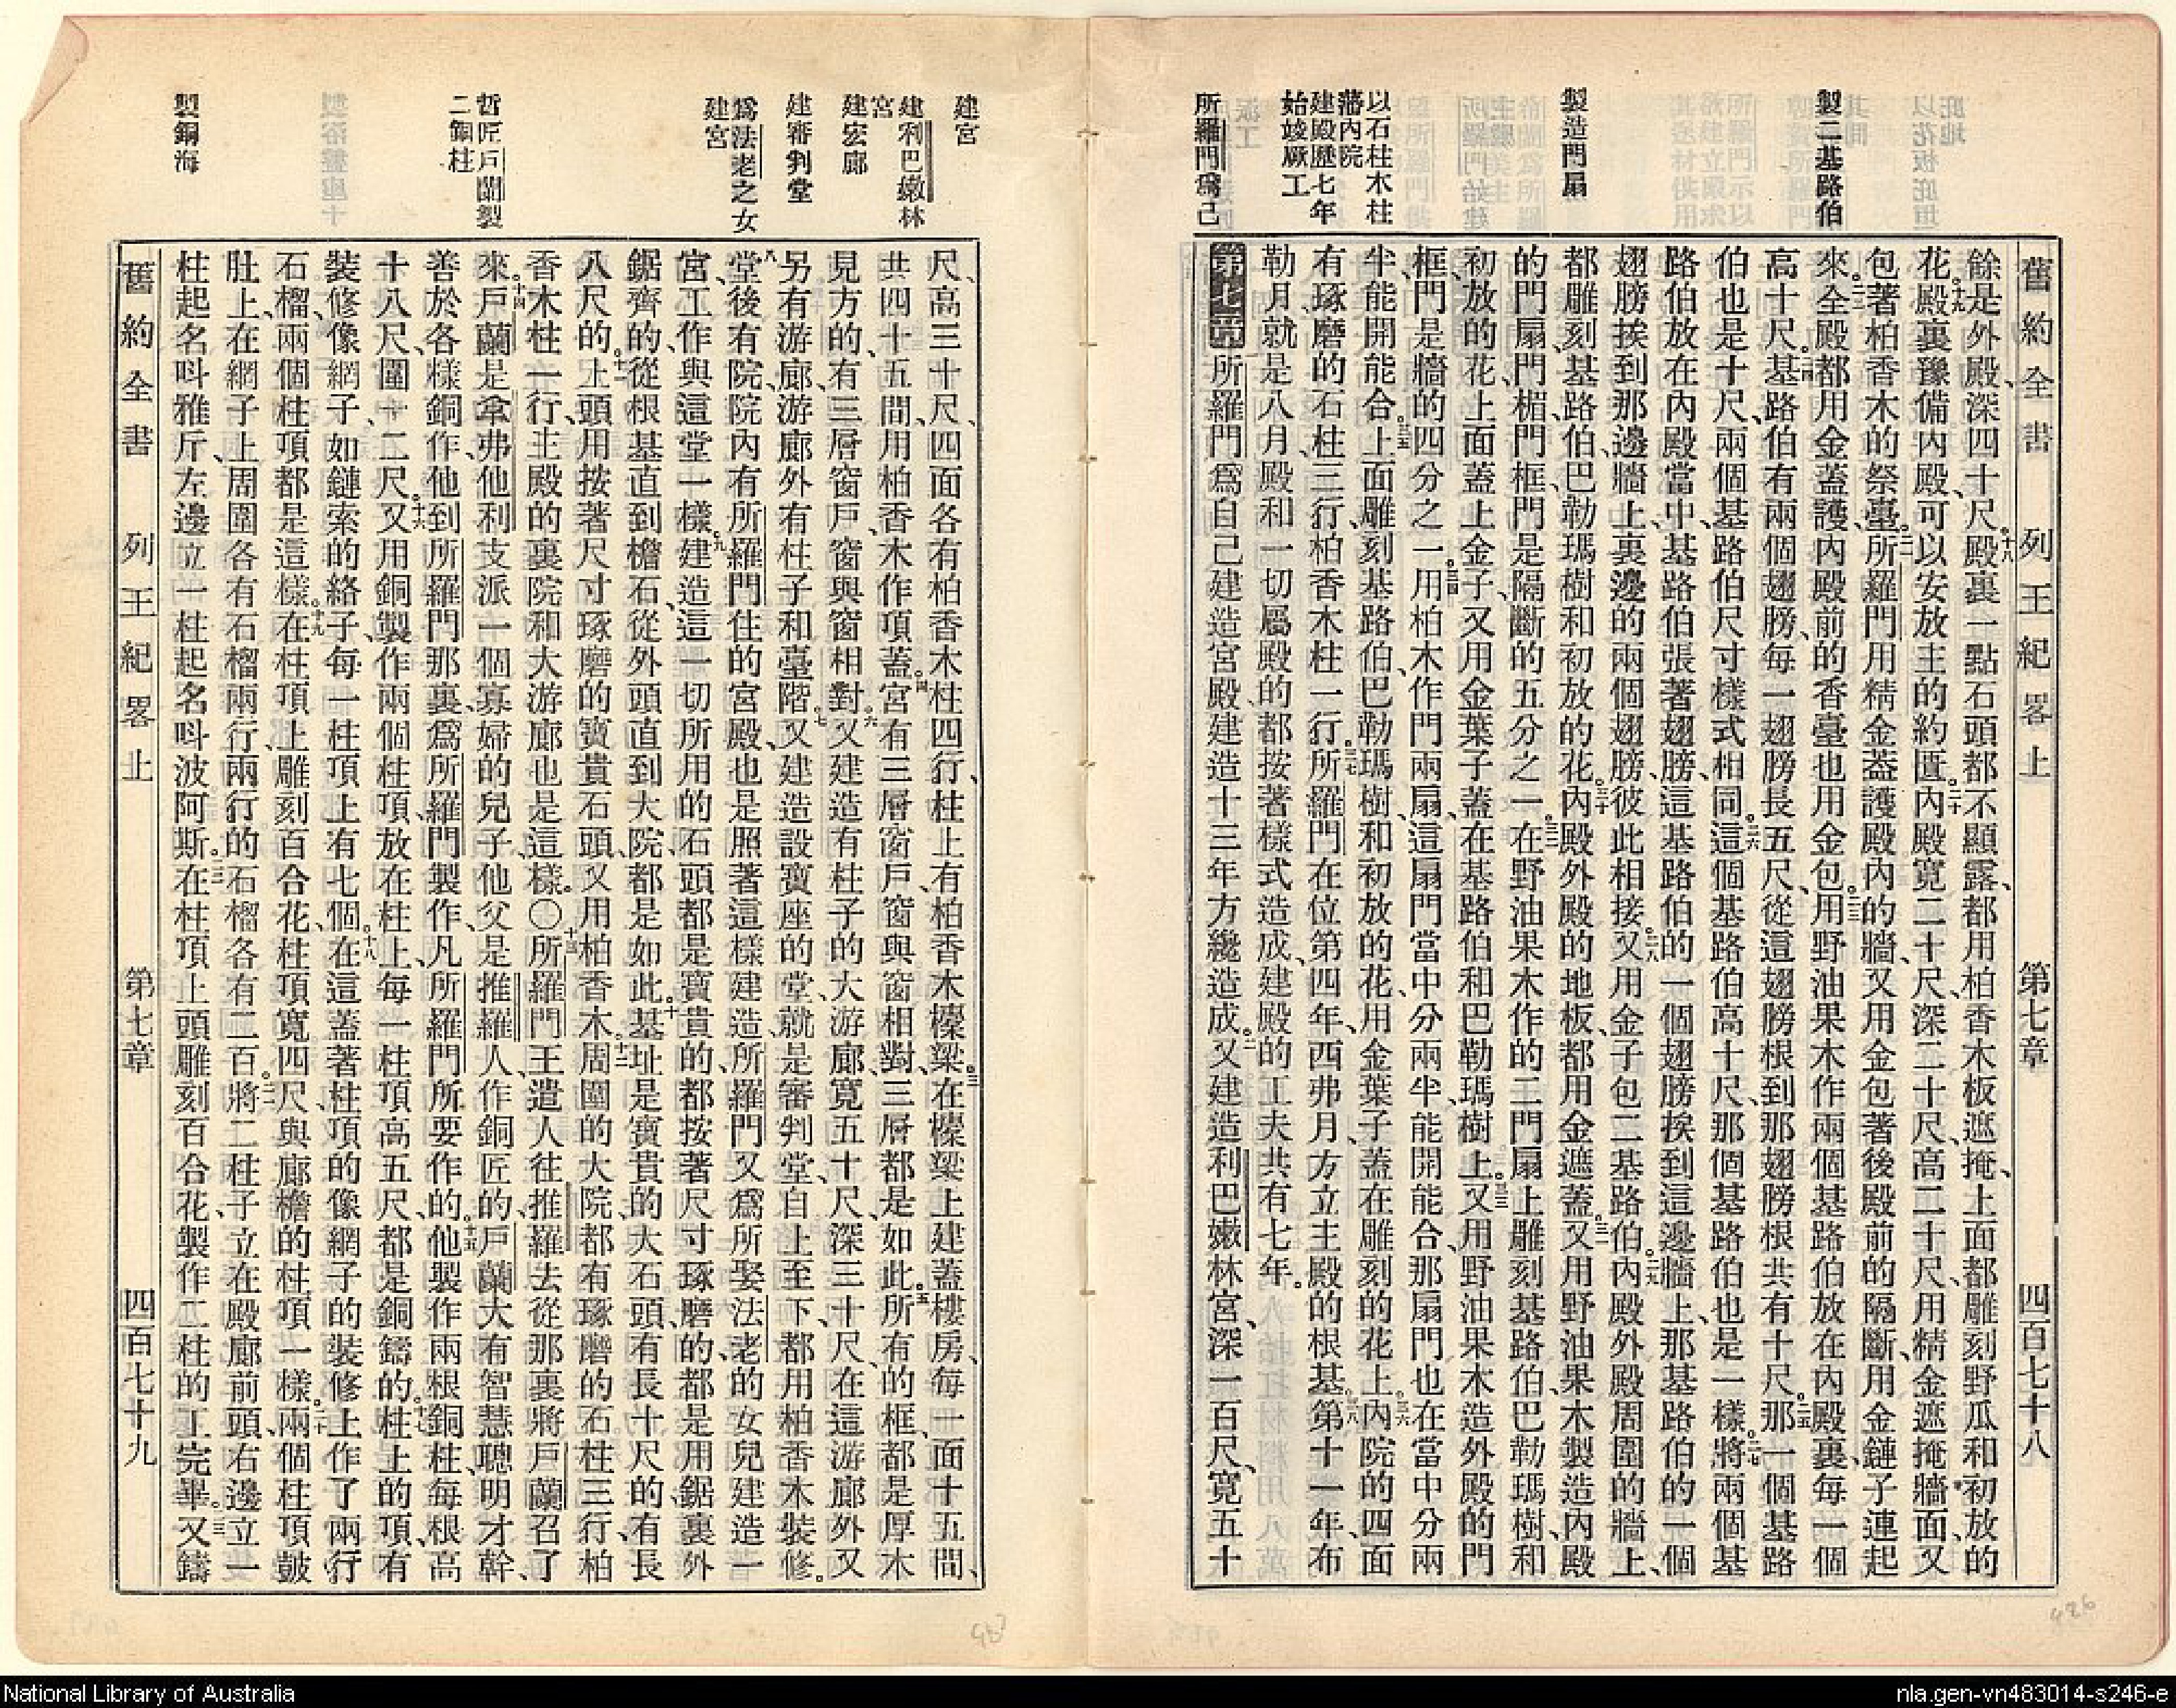 舊約全書 列王紀畧上 第七章 四百七十八
以花板庇垣
庇地
製二基路伯
製造門扇
以石柱木柱
藩內院
建殿歷七年
始竣厥工
所羅門爲己
餘是外殿、深四十尺。十八殿裏一點石頭都不顯露、都用柏香木板遮掩、上面都雕刻野瓜和初放的
花。十九殿裏豫備內殿、可以安放主的約匱。二十內殿寬二十尺、深二十尺、高二十尺、用精金遮掩牆面、又
包著柏香木的祭臺。二一所羅門用精金蓋護殿內的牆、又用金包著後殿前的隔斷、用金鏈子連起
來。二二全殿都用金蓋護、內殿前的香臺也用金包。二三用野油果木作兩個基路伯放在內殿裏、每一個
高十尺。二四基路伯有兩個翅膀、每一翅膀長五尺、從這翅膀根到那翅膀根共有十尺。二五那一個基路
伯也是十尺、兩個基路伯尺寸樣式相同。二六這個基路伯高十尺、那個基路伯也是一樣。二七將兩個基
路伯放在內殿當中、基路伯張著翅膀、這基路伯的一個翅膀挨到這邊牆上、那基路伯的一個
翅膀挨到那邊牆上、裏邊的兩個翅膀、彼此相接。二八又用金子包二基路伯。二九內殿外殿周圍的牆上、
都雕刻基路伯、巴勒瑪樹和初放的花。三十內殿外殿的地板、都用金遮蓋。三一又用野油果木製造內殿
的門扇、門楣門框、門是隔斷的五分之一。三二在野油果木作的二門扇上雕刻基路伯、巴勒瑪樹、和
初放的花、上面蓋上金子、又用金葉子蓋在基路伯和巴勒瑪樹上。三三又用野油果木造外殿的門
框、門是牆的四分之一。三四用柏木作門兩扇、這扇門當中分兩半、能開能合、那扇門也在當中分兩
半、能開能合。三五上面雕刻基路伯、巴勒瑪樹、和初放的花、用金葉子蓋在雕刻的花上。三六內院的四面
有琢磨的石柱三行、柏香木柱一行。三七所羅門在位第四年、西弗月、方立主殿的根基。三八第十一年、布
勒月、就是八月、殿和一切屬殿的、都按著樣式造成、建殿的工夫共有七年。
第七章 所羅門爲自己建造宮殿、建造十三年方纔造成。二又建造利巴嫩林宮、深一百尺、寬五十
建宮
建利巴嫩林
宮
建宏廊
建審判堂
爲法老之女
建宮
哲匠戶蘭製
二銅柱
製銅海
尺、高三十尺、四面各有柏香木柱四行、柱上有柏香木檁梁。三在檁梁上建蓋樓房、每一面十五間、
共四十五間、用柏香木作頂蓋。四宮有三層窗戶、窗與窗相對、三層都是如此。五所有的框都是厚木
見方的、有三層窗戶、窗與窗相對。六又建造有柱子的大游廊、寬五十尺、深三十尺、在這游廊外又
另有游廊、游廊外有柱子和臺階。七又建造設寶座的堂、就是審判堂、自上至下、都用柏香木裝修。
八堂後有院、院內有所羅門住的宮殿、也是照著這樣建造、所羅門又爲所娶法老的女兒建造一
宮、工作與這堂一樣。九建造這一切所用的石頭都是寶貴的、都按著尺寸琢磨的、都是用鋸裏外
鋸齊的、從根基直到檐石、從外頭直到大院、都是如此。十基址是寶貴的大石頭、有長十尺的、有長
八尺的。十一上頭用按著尺寸琢磨的寶貴石頭、又用柏香木。十二周圍的大院、都有琢磨的石柱三行、柏
香木柱一行、主殿的裏院和大游廊也是這樣。〇十三所羅門王遣人往推羅去、從那裏將戶蘭召了
來。十四戶蘭是拿弗他利支派一個寡婦的兒子、他父是推羅人、作銅匠的、戶蘭大有智慧聰明才幹、
善於各樣銅作、他到所羅門那裏、爲所羅門製作、凡所羅門所要作的。十五他製作兩根銅柱、每根高
十八尺、圍十二尺。十六又用銅製作兩個柱頂、放在柱上、每一柱頂高五尺、都是銅鑄的。十七柱上的頂、有
裝修像網子、如鏈索的絡子、每一柱頂上有七個。十八在這蓋著柱頂的像網子的裝修上、作了兩行
石榴、兩個柱頂都是這樣。十九在柱頂上雕刻百合花、柱頂寬四尺、與廊檐的柱頂一樣。二十兩個柱頂鼓
肚上、在網子上、周圍各有石榴兩行、兩行的石榴各有二百。二一將二柱子、立在殿廊前頭、右邊立一
柱起名呌雅斤、左邊立一柱起名呌波阿斯。二二在柱頂上頭雕刻百合花、製作二柱的工完畢。二三又鑄
舊約全書 列王紀畧上 第七章 四百七十九
426
National Library of Australia
nla.gen-vn483014-s246-e